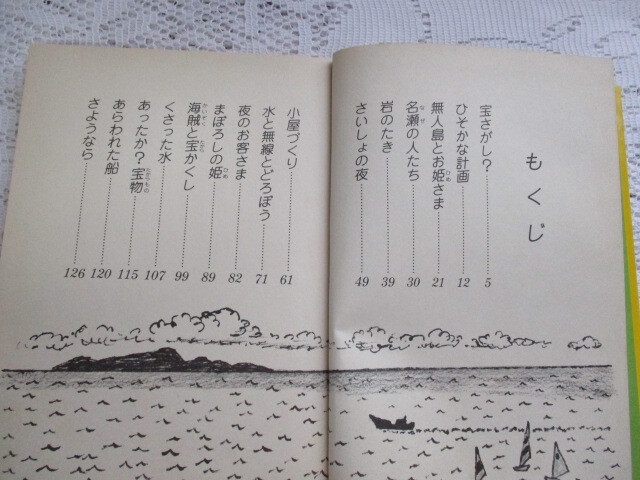 もくじ
宝さがし?……5
ひそかな計画……12
無人島とお姫さま……21
名瀬の人たち……30
岩のたき……39
さいしょの夜……49
小屋づくり……61
水と無線とどろぼう……71
夜のお客さま……82
まぼろしの姫……89
海賊と宝かくし……99
くさった水……107
あったか?宝物……115
あらわれた船……120
さようなら……126